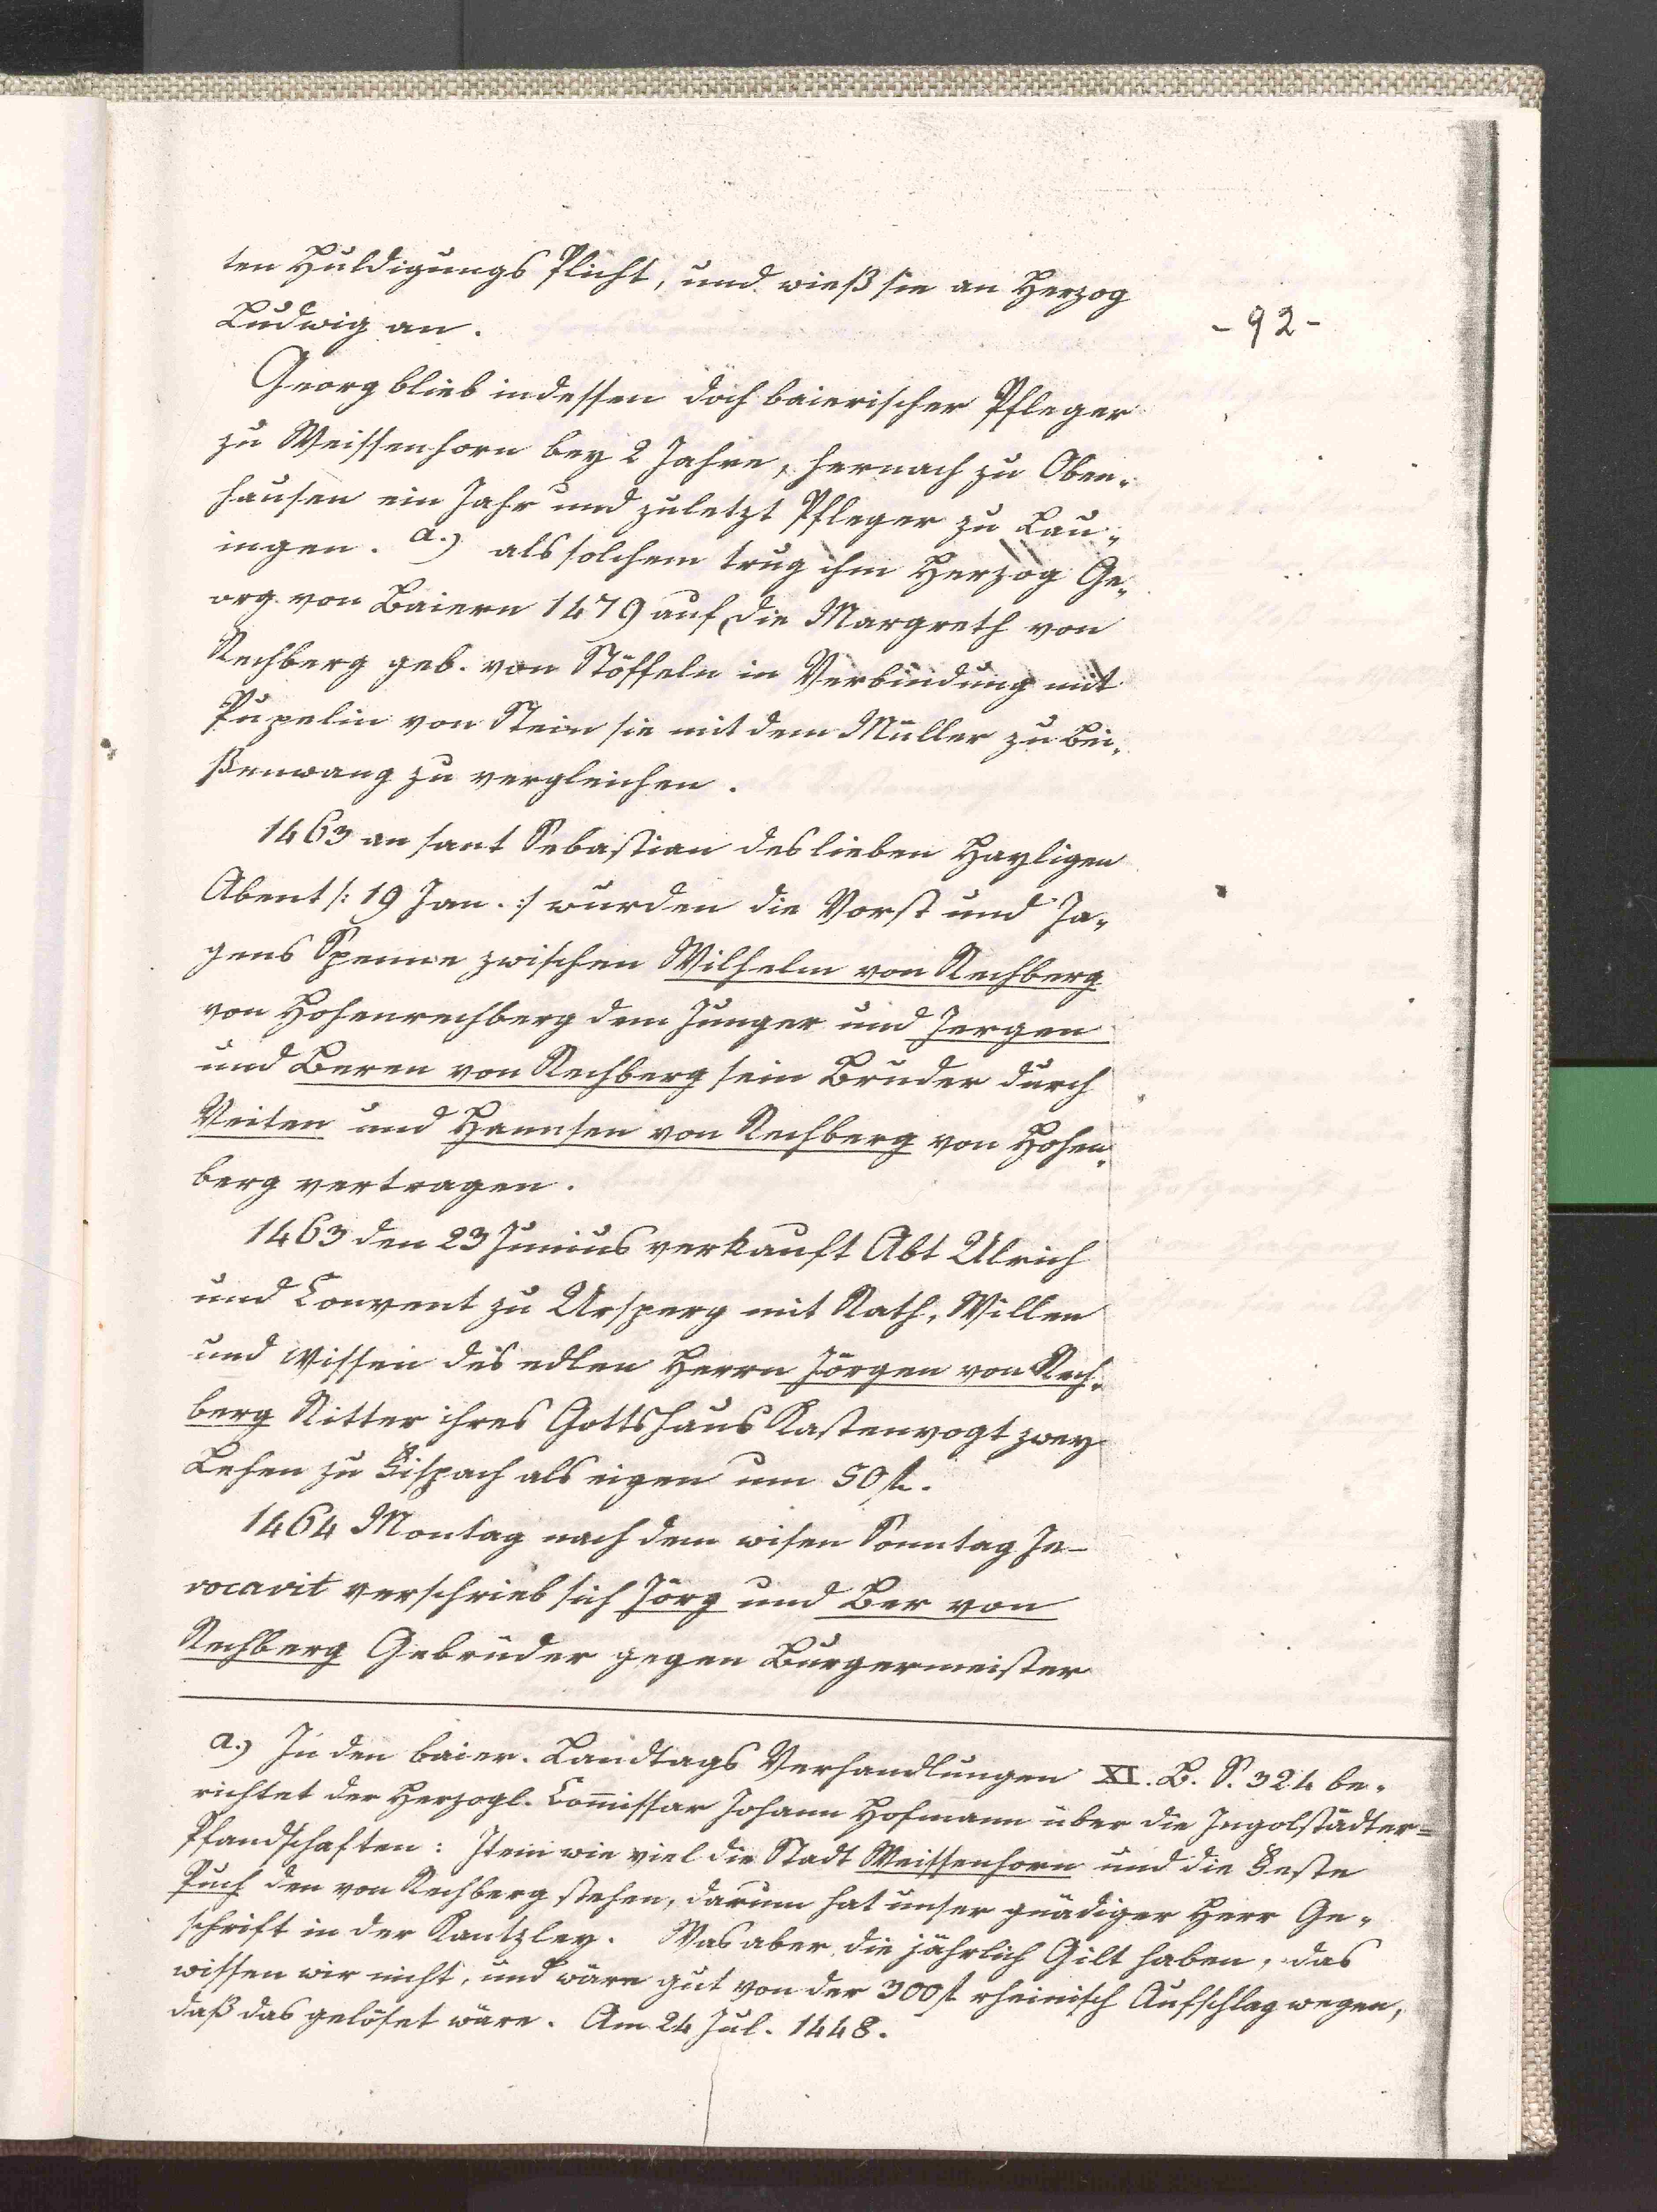 ten Huldigungs Plicht, und wieß sie an Herzog
Ludwig an.
- 92 -
Georg blieb indessen doch baierischer Pfleger
zu Weissenhorn bey 2 Jahre, hernach zu Oben„
hausen ein Jahr und zuletzt Pfleger zu Lau„
ingen. a.) als solchem trug ihm Herzog Ge„
org von Baiern 1479 auf, die Margreth von
Rechberg geb. von Stöffeln in Verbindung mit
Pupelin von Stein sie mit dem Müller zu Bei„
ßenwang zu vergleichen.
1463 an sant Sebastian des lieben Hayligen
Abent /: 19 Jan. :/ wurden die Vorst und Ja„
gens Spenne zwischen Wilhelm von Rechberg
von Hohenrechberg dem Junger und Jergen
und Beren von Rechberg sein Bruder durch
Veiten und Hannsen von Rechberg von Hohen„
berg vertragen.
1463 den 23 Junius verkauft Abt Ulrich
und Convent zu Ursperg mit Rath, Willen
und Wissen des edlen Herrn Jörgen von Rech„
berg Ritter ihres Gottshaus Kastenvogt zwey
Lehen zu Eispach als eigen um 50 fl.
1464 Montag nach dem wisen Sonntag In-
vocavit verschrieb sich Jörg und Ber von
Rechberg Gebrüder gegen Burgermeister
a.) In den baier. Landtags Verhandlungen XI. B. S. 324 be„
richtet der Herzogl. Com̄issar Johann Hofmann über die Ingolstädter=
Pfandschaften: Item wie viel die Stadt Weissenhorn und die Veste
Puch den von Rechberg stehen, darum hat unser gnädiger Herr Ge„
schrift in der Kantzley. Was aber die jährlich Gilt haben, das
wissen wir nicht, und wäre gut von der 300 fl rheinisch Aufschlag wegen,
daß das gelöset wäre. Am 24 Jul. 1448.